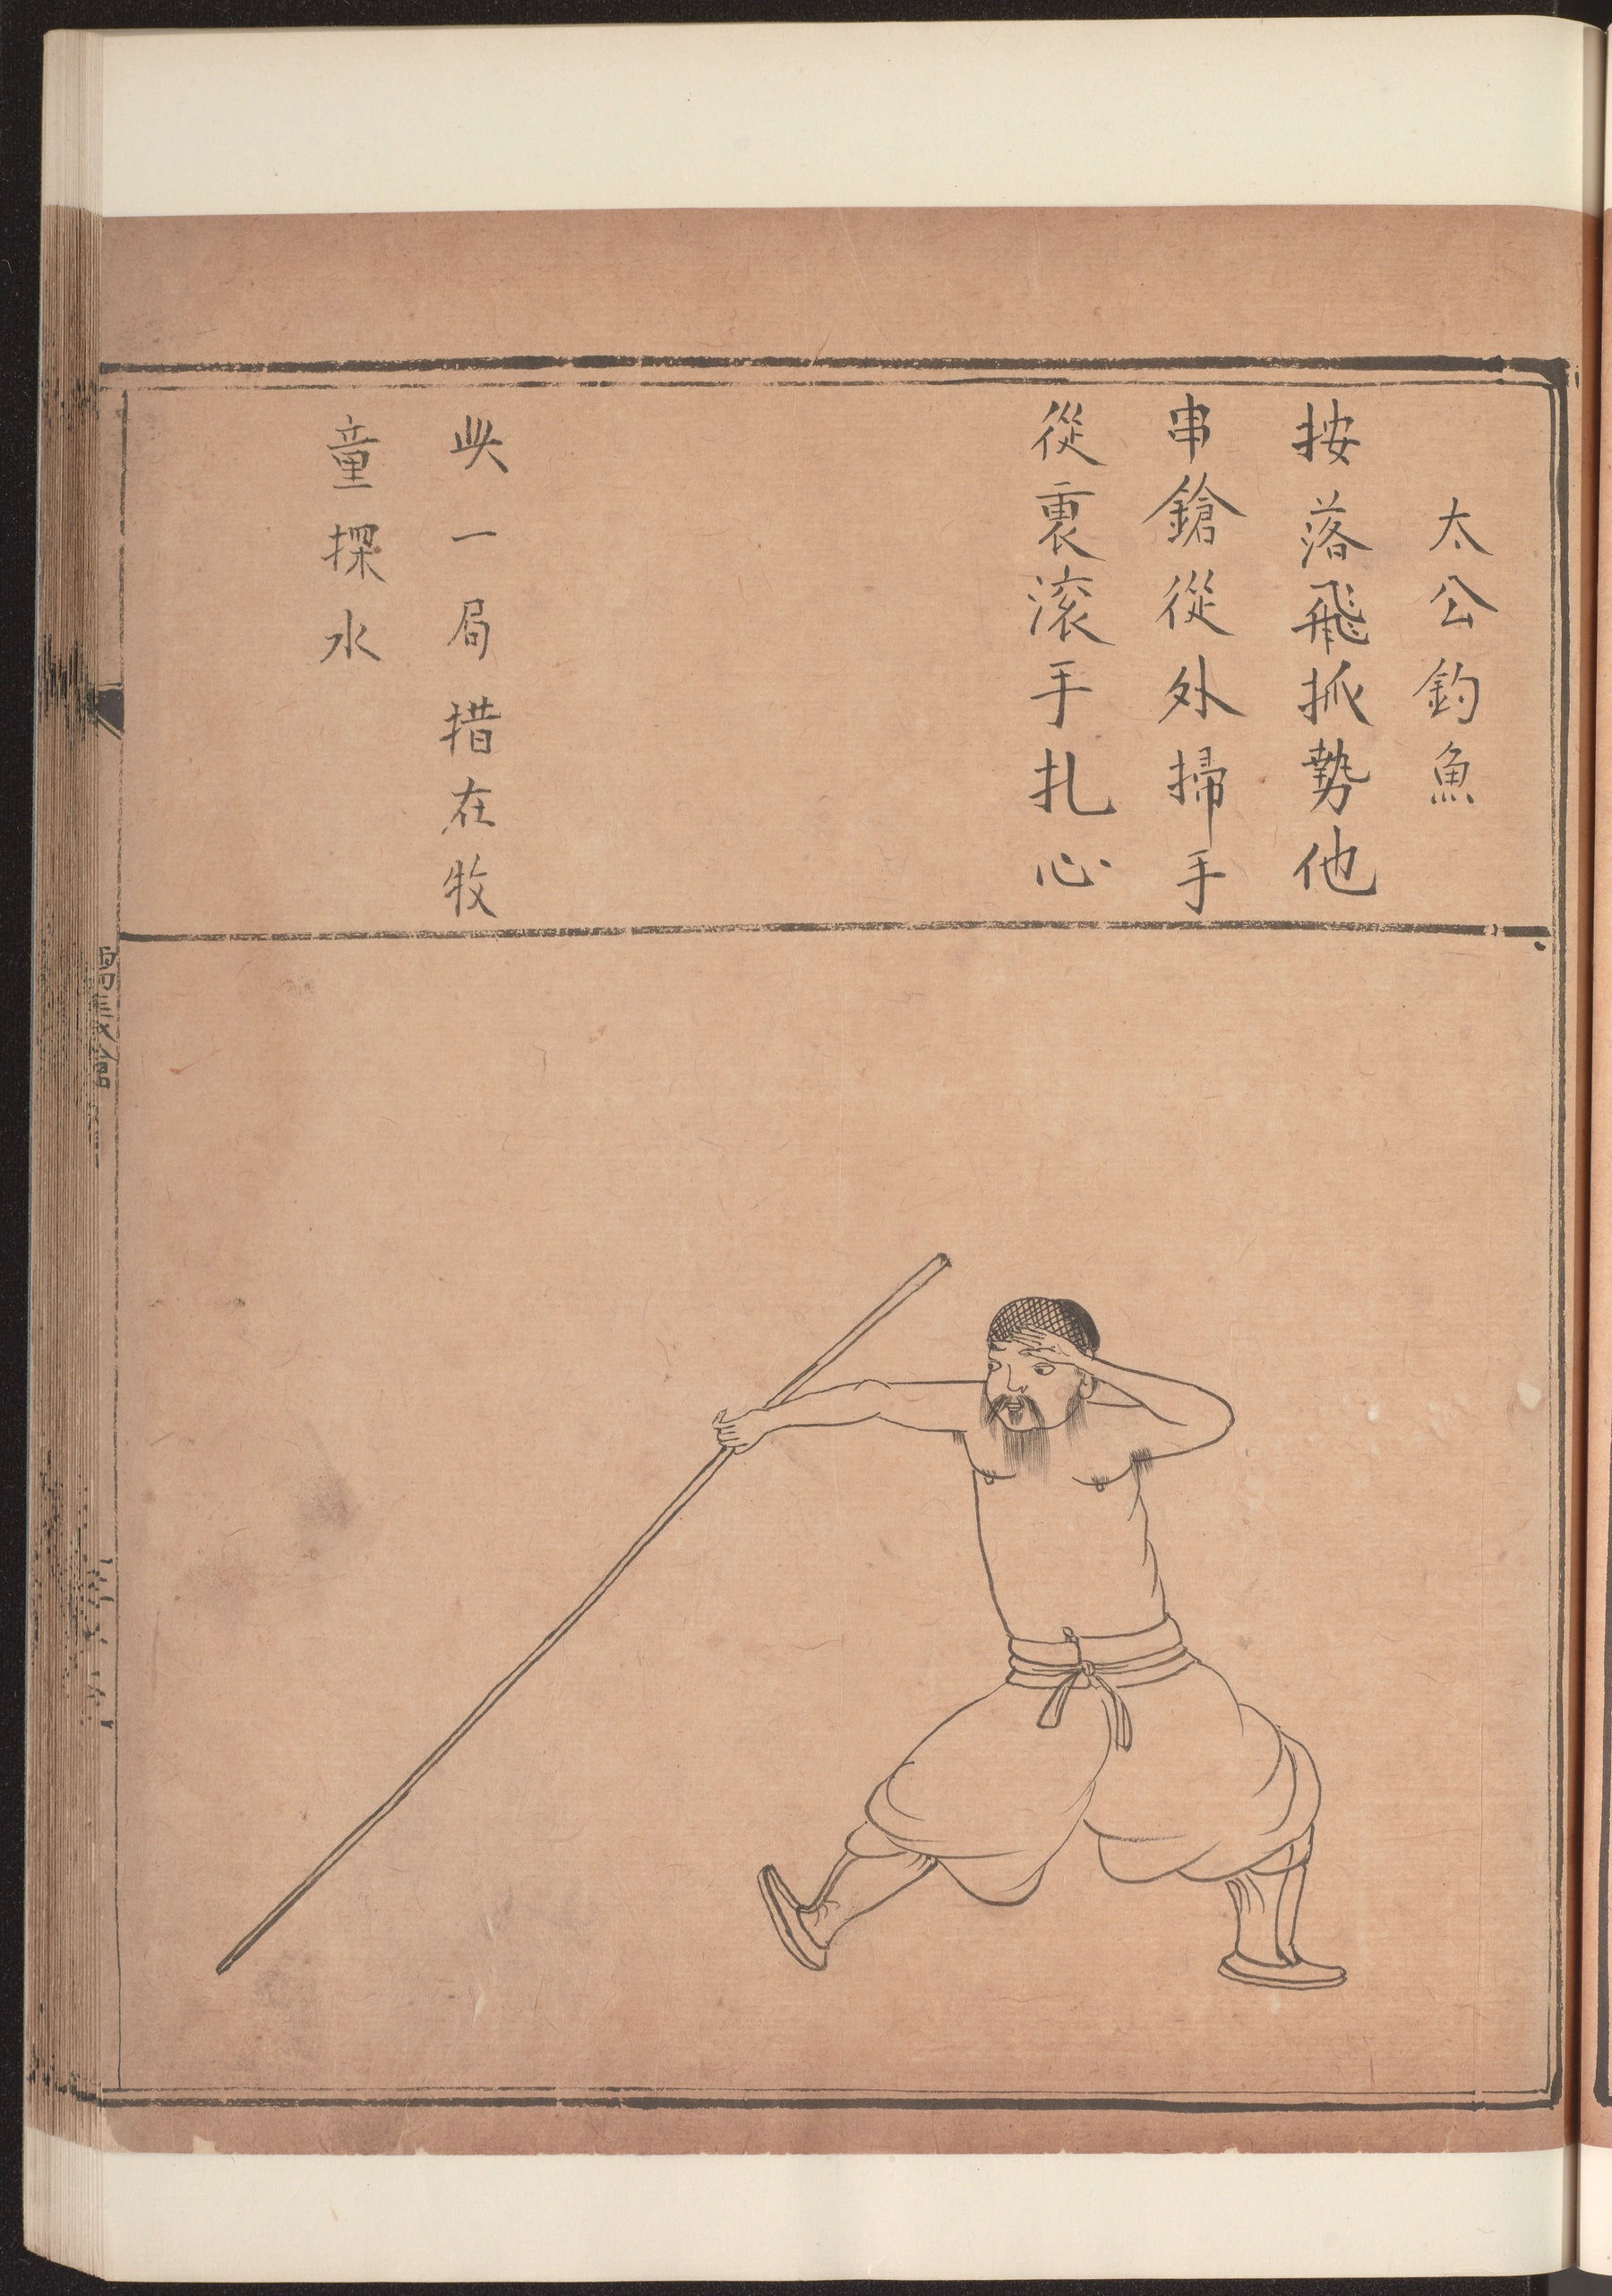 太公釣魚
按落飛抓勢他
串鎗從外掃手
從裏滚手扎心
此一局措在牧
童探水